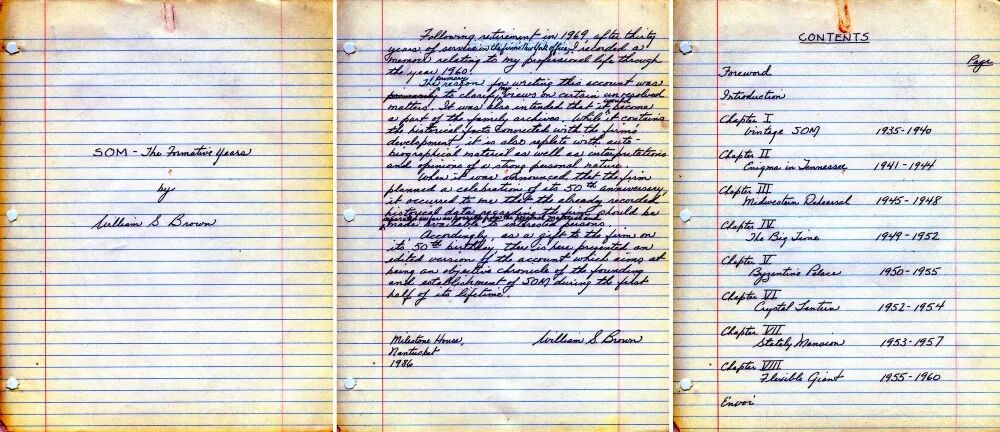 SOM - The Formative Years
by
William S Brown
Following retirement in 1969, after thirty
years of service in the firm's New York office, I recorded a
memoir relating to my professional life through
the year 1960.
The primary reason for writing this account was
primarily to clarify my views on certain unresolved
matters. It was also intended that it would become
a part of the family archives. While it contains
the historical facts connected with the firm's
development, it is also replete with auto-
biographical material as well as interpretations
and opinions of a strong personal nature.
When it was announced that the firm
planned a celebration of its 50th anniversary,
it occurred to me that the already recorded
historical data regarding the firm should be
made available to interested persons.
Accordingly, as a gift to the firm on
its 50th birthday, there is here presented an
edited version of the account which aims at
being an objective chronicle of the founding
and establishment of SOM during the first
half of its lifetime.
Milestone House, William S Brown
Nantucket
1986
CONTENTS
Page
Foreword
Introduction
Chapter I
Vintage SOM 1935-1940
Chapter II
Enigma in Tennessee 1941-1944
Chapter III
Midwestern Rehearsal 1945-1948
Chapter IV
The Big Time 1949-1952
Chapter V
Byzantine Palace 1950-1955
Chapter VI
Crystal Lantern 1952-1954
Chapter VII
Stately Mansion 1953-1957
Chapter VIII
Flexible Giant 1955-1960
Envoi